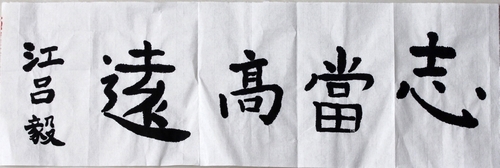 志當高遠
江呂毅